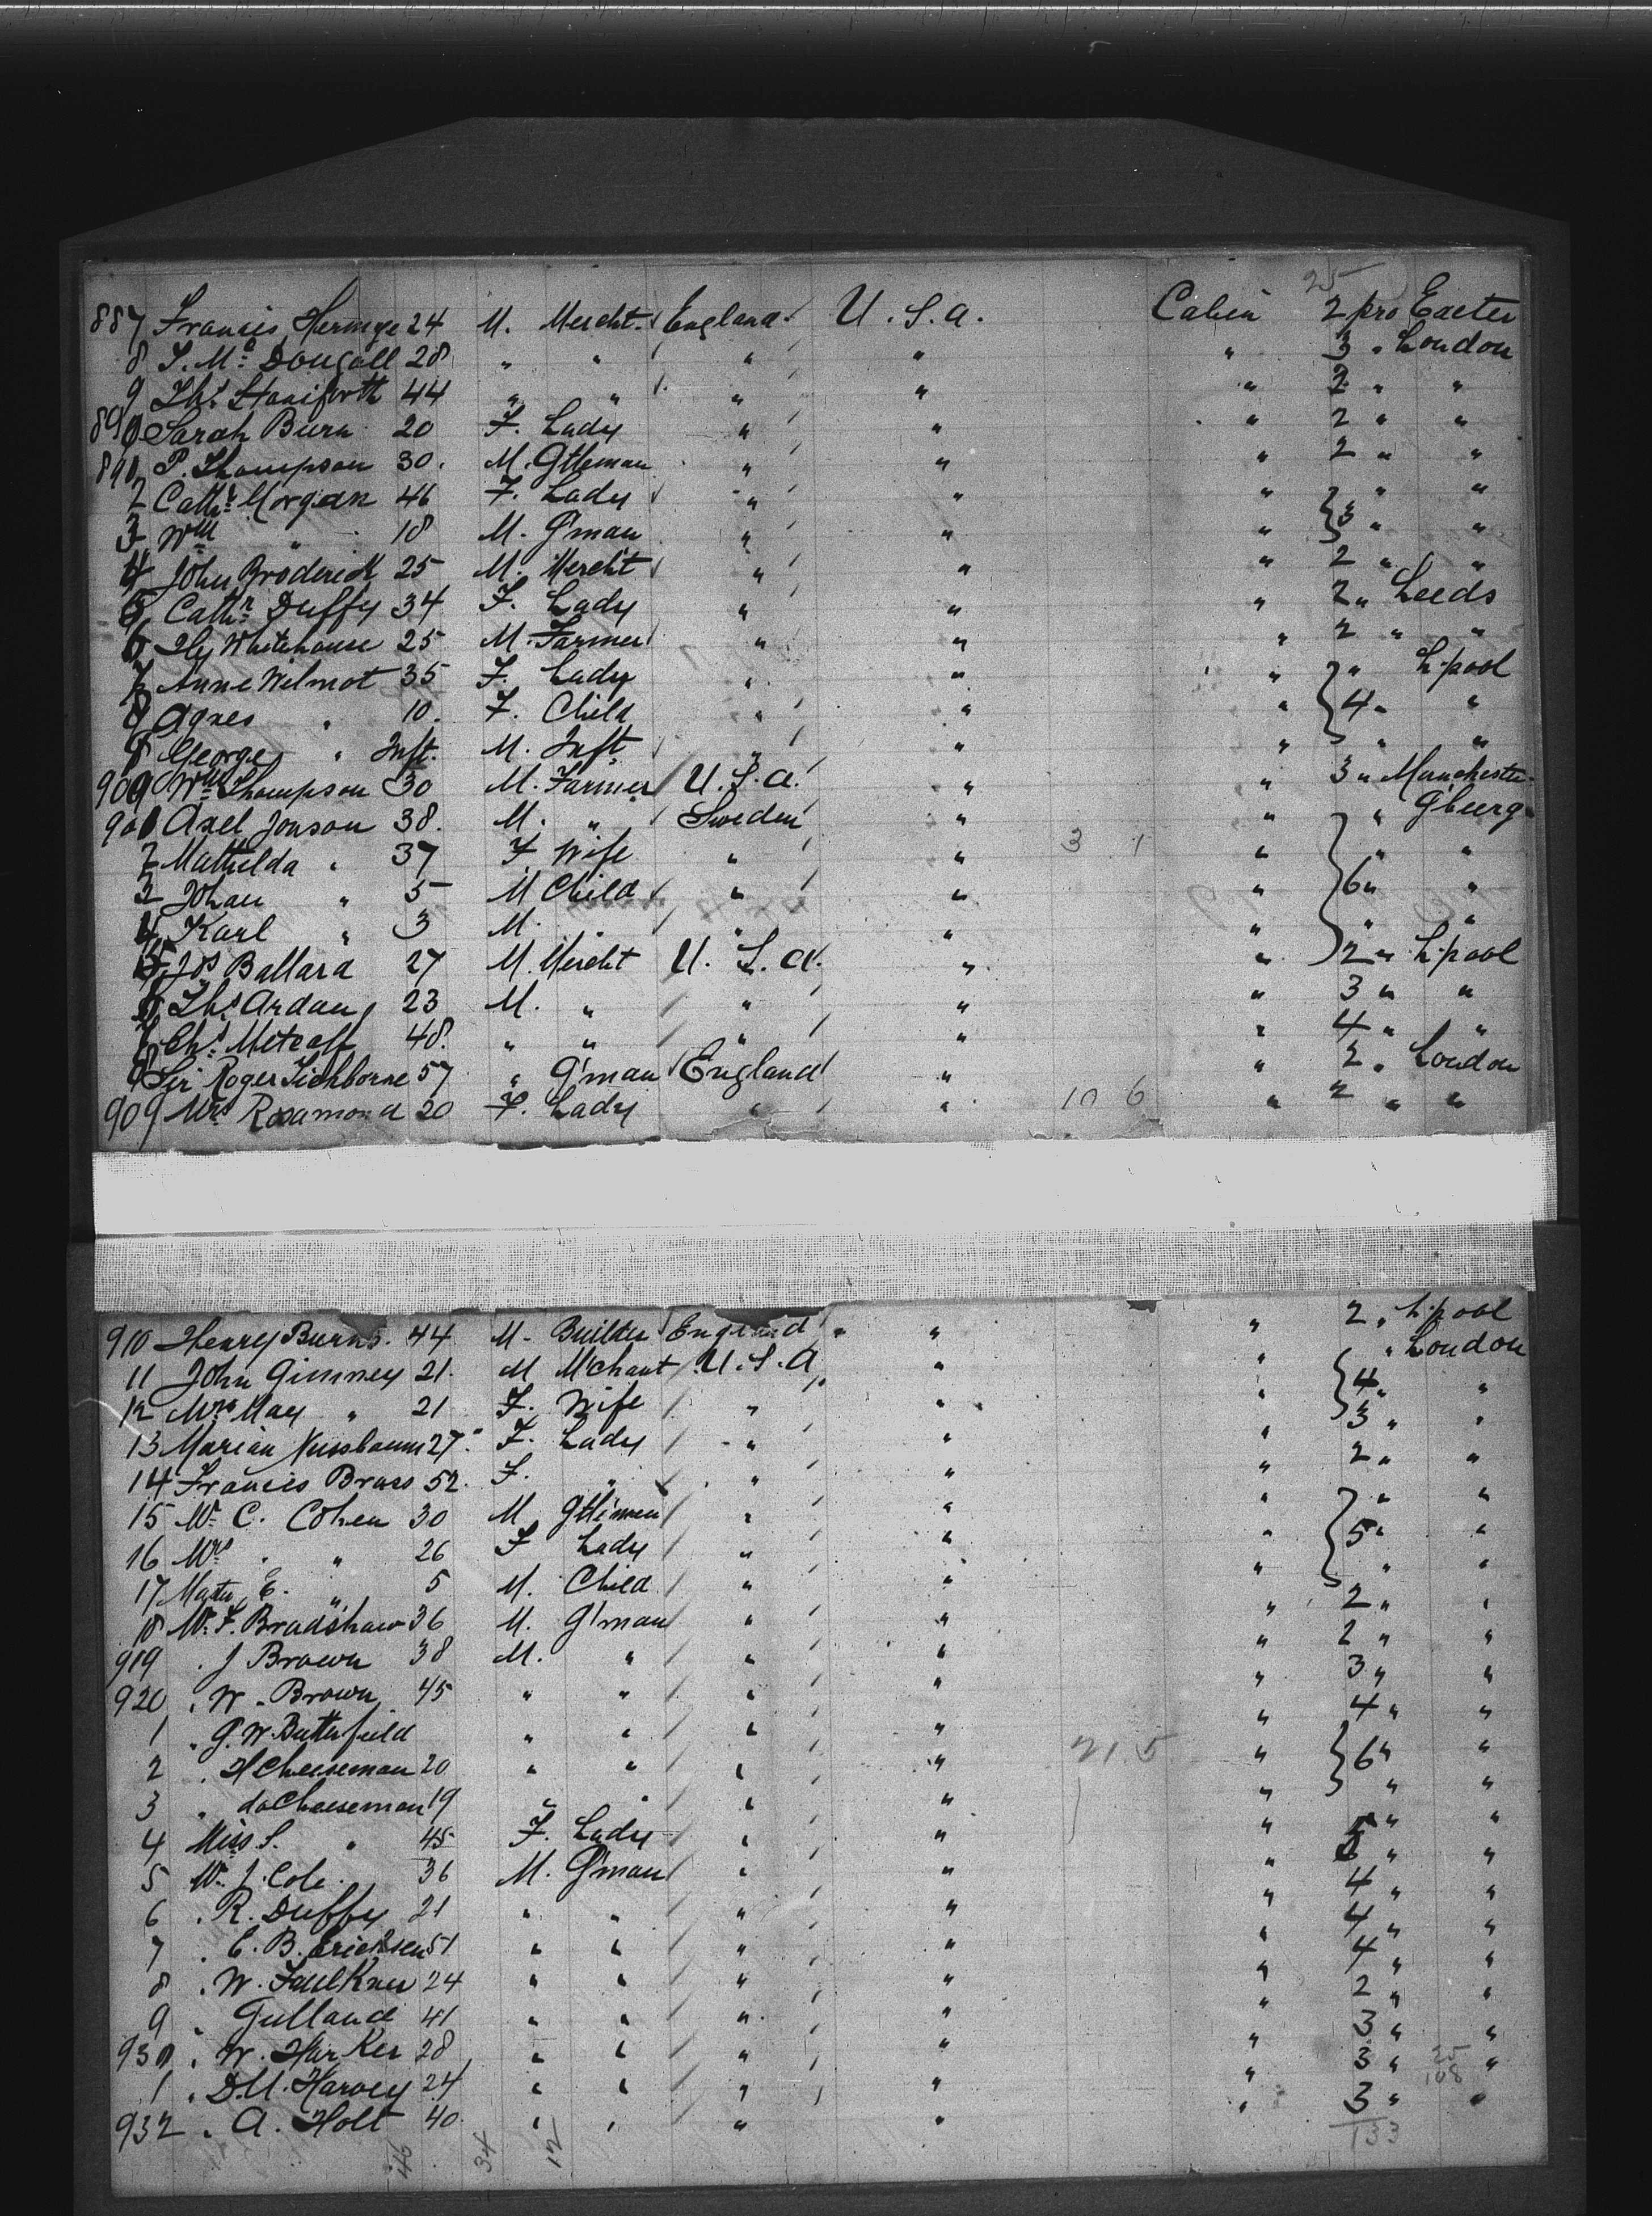 25
887 Francis Hermge 24 M. Mercht. England U.S.A. Cabin 2 pro Exeter
8 J. Mc Dougall 28 " " " " " 3 " London
9 Ths Staniforth 44 " " " " " 2 " "
890 Sarah Burn 20 F. Lady " " " 2 " "
891 P. Thompson 30. M. Gtleman " " " 2 " "
2 Cathr Morgan 46 F. Lady " " " " "
3 Wm " 18 M. G'man " " " 3 " "
4 John Broderick 25 M. Mercht " " " 2 " "
5 Cathn Duffy 34 F. Lady " " " 2 " Leeds
6 Hy Whitehouse 25 M. Farmer " " " 2 " "
7 Anne Wilmot 35 F. Lady " " " " L'pool
8 Agnes " 10. F. Child " " " 4 " "
9 George " Inft. M. Inft " " " " "
900 Wm Thompson 30 M. Farmer U.S.A. " " 3 " Manchester
901 Axel Jonson 38. M. " Sweden " " " G'burg
2 Mathilda " 37 F Wife " " 3 1 " " "
3 Johan " 5 M Child " " " 6 " "
4 Karl " 3 M. " " " " " "
5 Jos Ballard 27 M. Mercht U.S.A. " " 2 " L'pool
6 Ths Ardan 23 M. " " " " 3 " "
7 Chs Metcalf 48. " " " " " 4 " "
8 Sir Roger Tichborne 57 " G'man England " " 2 " London
909 Mrs Rosamond 20 F. Lady " " 10 6 " 2 " "
910 Henry Burns. 44 M. Builder England " " 2 " L'pool
11 John Gimmey 21. M M'chant U.S.A " " " London
12 Mrs May " 21 F. Wife " " " 4 " "
13 Marian Nussbaum 27. F. Lady " " " 3 " "
14 Francis Brass 52. F. " " " " 2 " "
15 Mr C. Cohen 30 M Gtleman " " " " "
16 Mrs " " 26 F Lady " " " 5 " "
17 Mastr E. " 5 M. Child " " " " "
18 Mr F. Bradshaw 36 M. G'man " " " 2 " "
919 " J Brown 38 M. " " " " 2 " "
920 " W. Brown 45 " " " " " 3 " "
1 " G. W. Butterfield " " " " " 4 " "
2 " H Cheeseman 20 " " " " 21 5 " 6 " "
3 " do Cheeseman 19 " " " " " " "
4 Miss S. " 45 F. Lady " " " " "
5 Mr J. Cole. 36 M. G'man " " " " "
6 " R. Duffy 21 " " " " " 4 " "
7 " C. B. Ericksen 51 " " " " " 4 " "
8 " W. Faulkner 24 " " " " " 4 " "
9 " Gulland 41 " " " " " 2 " "
930 " W. Harker 28 " " " " " 3 " "
1 " D. M. Harvey 24 " " " " " 3 " "
25
108
932 " A. Holt 40 " " " " " 3 " "
133
46 34 12